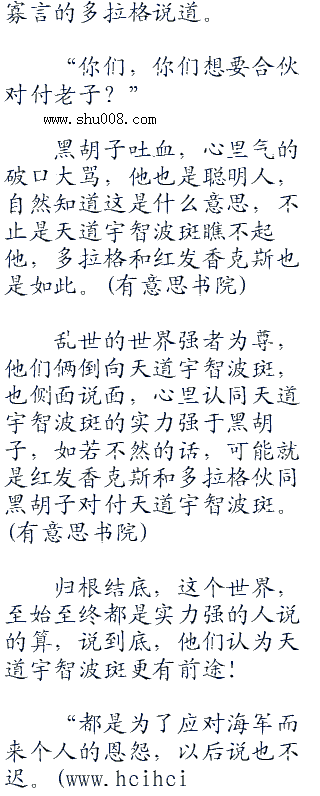 寡言的多拉格说道。
“你们，你们想要合伙
对付老子？”
www.shu008.com
黑胡子吐血，心里气的
破口大骂，他也是聪明人，
自然知道这是什么意思，不
止是天道宇智波斑瞧不起
他，多拉格和红发香克斯也
是如此。(有意思书院)
乱世的世界强者为尊，
他们俩倒向天道宇智波斑，
也侧面说面，心里认同天道
宇智波斑的实力强于黑胡
子，如若不然的话，可能就
是红发香克斯和多拉格伙同
黑胡子对付天道宇智波斑。
(有意思书院)
归根结底，这个世界，
至始至终都是实力强的人说
的算，说到底，他们认为天
道宇智波斑更有前途！
“都是为了应对海军而
来个人的恩怨，以后说也不
迟。(www.hcihci